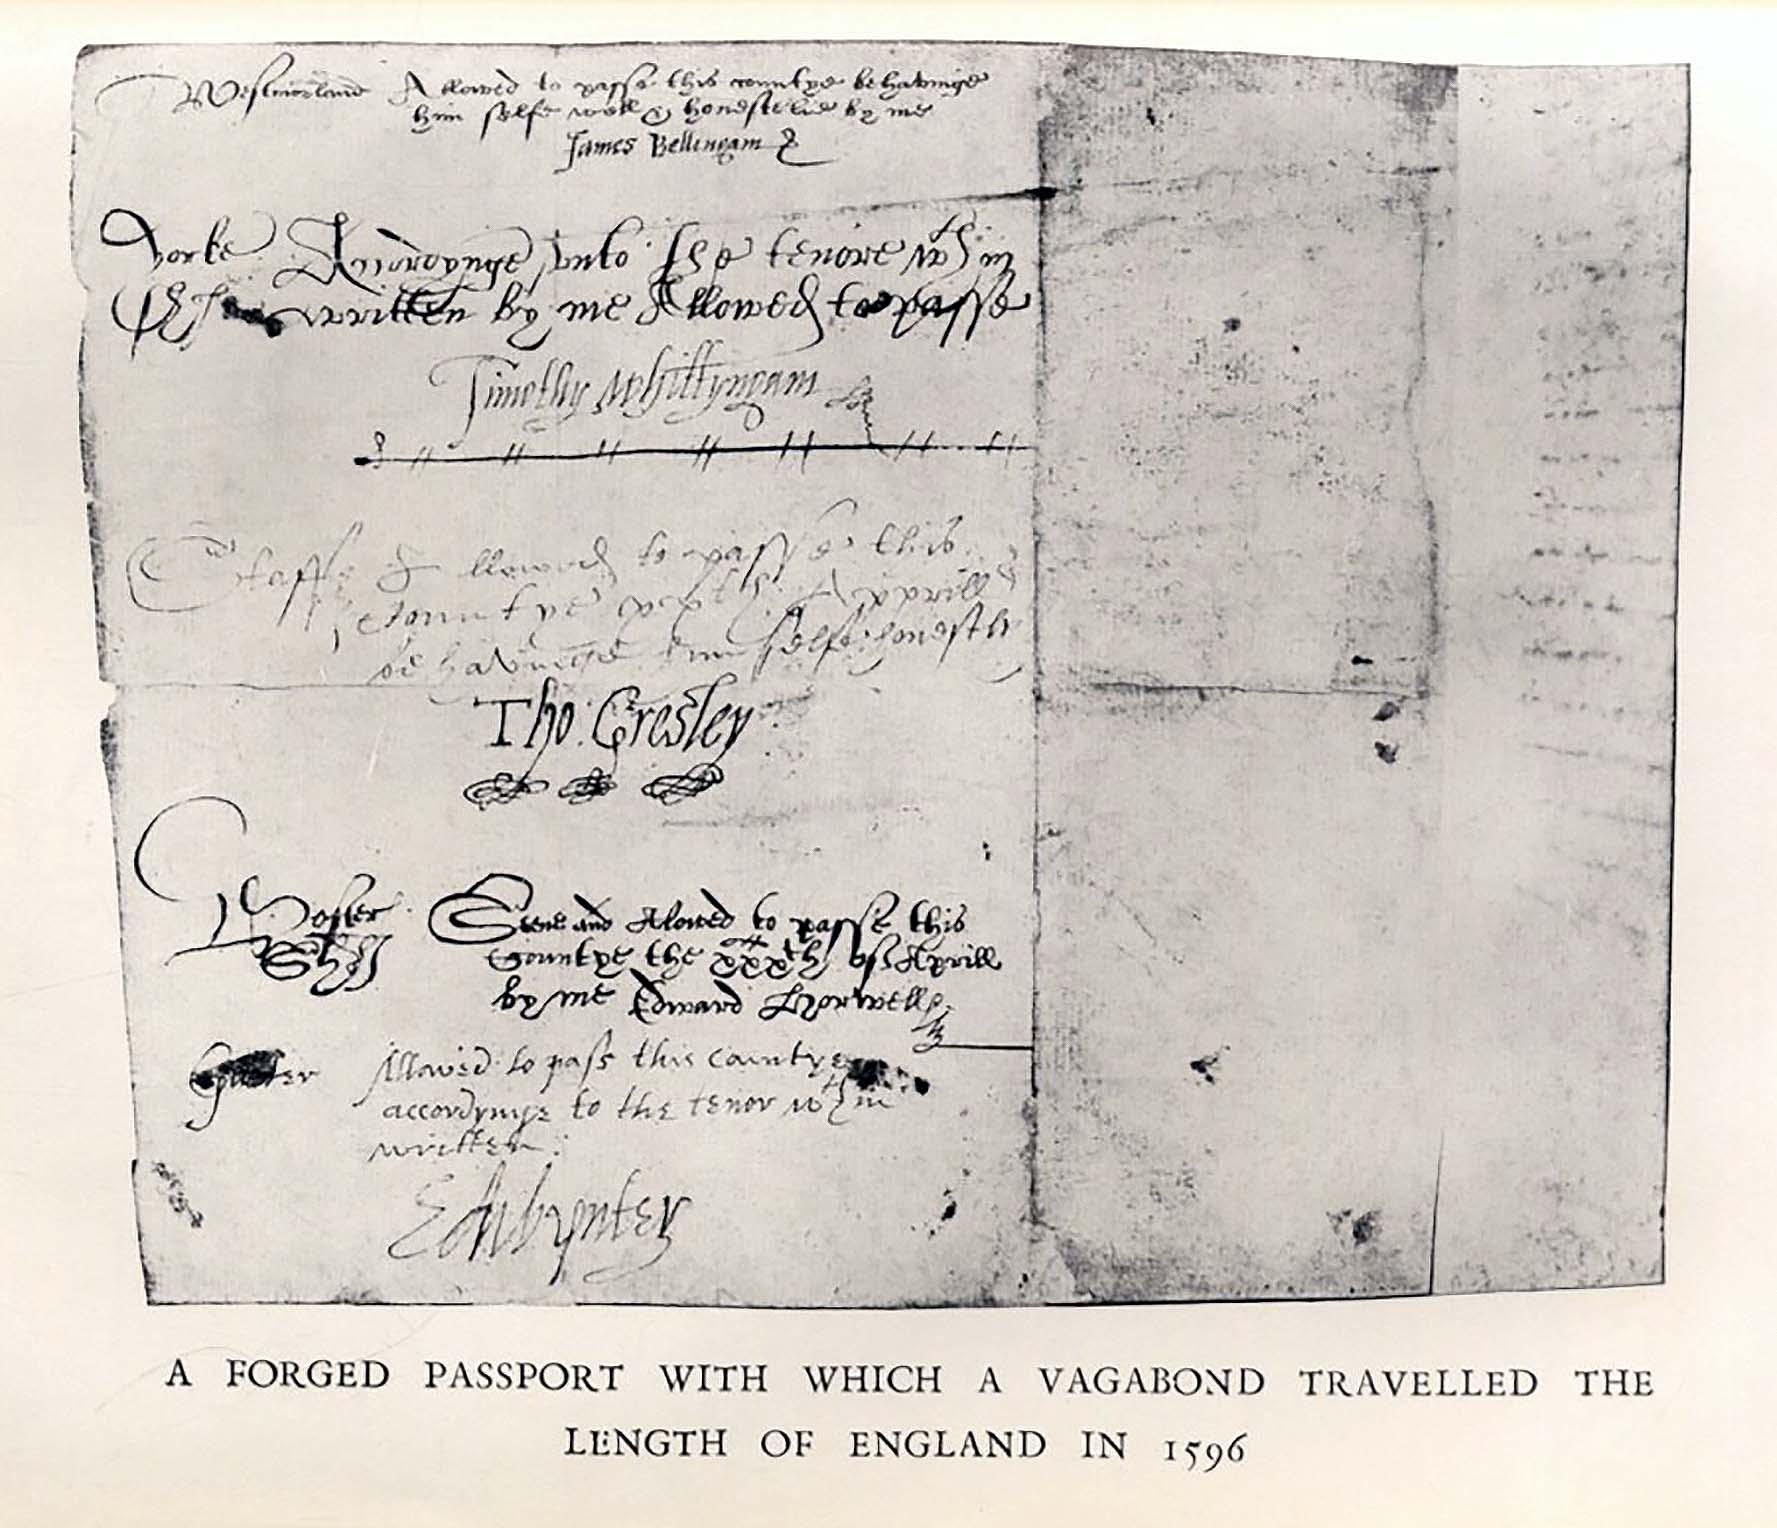 Westmorland Allowed to passe this countye behavinge
him selfe well & honestelie by me
James Bellingam
Yorke Accordynge unto the tenore wthin
written by me Allowed to passe
Timothy Whittyngam
Staff Allowed to passe this
Countye xxth Apprill
behavinge him selfe honestly
Tho. Gresley
Seene and Alowed to passe this
Countye the xxxth of Aprill
by me Edward
Allowed to pass this countye
accordynge to the tenor wthin
written
A FORGED PASSPORT WITH WHICH A VAGABOND TRAVELLED THE
LENGTH OF ENGLAND IN 1596